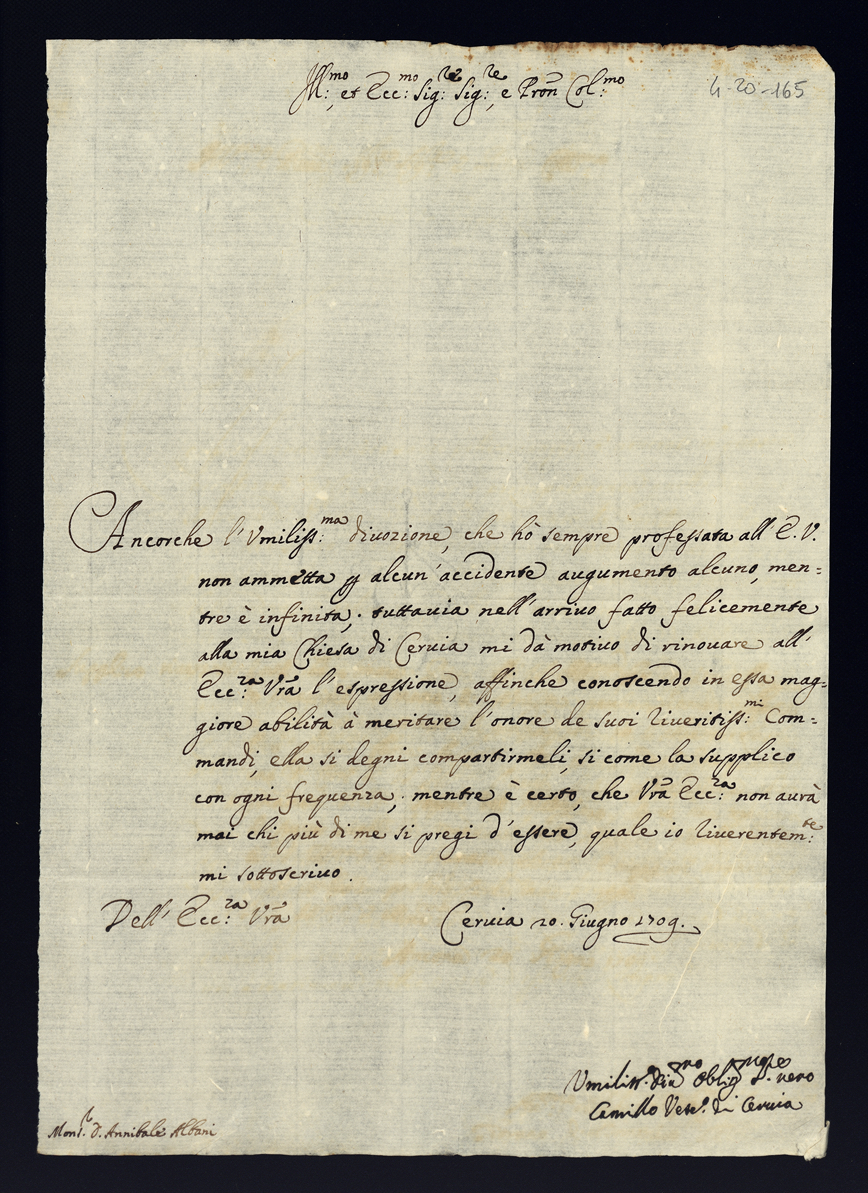 Ill:mo et Ecc:mo Sig:re Sig:re, e Pron Col:mo
4-20-165
Ancorche l'Umiliss:ma divozione, che hò sempre professata all'E.V.
non ammetta p alcun'accidente augumento alcuno, men=
tre è infinita; tuttauia nell'arriuo fatto felicemente
alla mia Chiesa di Ceruia mi dà motiuo di rinouare all'
Ecc:za Vra l'espressione, affinche conoscendo in essa mag=
giore abilità à meritare l'onore de suoi riueritiss:mi Com=
mandi, ella si degni compartirmeli, si come la supplico
con ogni frequenza; mentre è certo, che Vra Ecc:za non aurà
mai chi più di me si pregi d'essere, quale io riuerentem:te
mi sottoscriuo.
Dell'Ecc:za Vra
Ceruia 20. Giugno 1709.
Umiliss.o Oblig vero
Camillo Vesc.o di Ceruia
Mons.r D. Annibale Albani